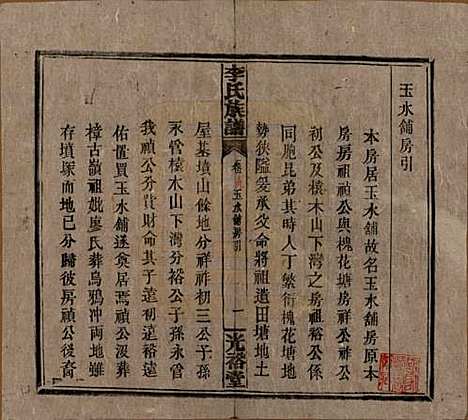 玉水舖房引
本房居玉水舖故名玉水舖房原本
房房祖禎公與槐花塘房祖祥公祚公
初公及檬木山下灣之房祖裕公
同胞昆弟其時人丁繁衍槐花塘地
勢狹隘爰承父命將祖遺田塘地土
李氏族譜
卷 玉水舖房引
一
光裕堂
屋基墳山餘地分祥祚初三公子孫
永管檬木山下灣分裕公子孫永管
我禎公分貲財命其子遠初遠裕遠
佑置買玉水舖遂僉居焉禎公沒葬
樟古嶺祖妣廖氏葬烏鴉冲兩地雖
存墳塚而地已分歸彼房禎公後裔